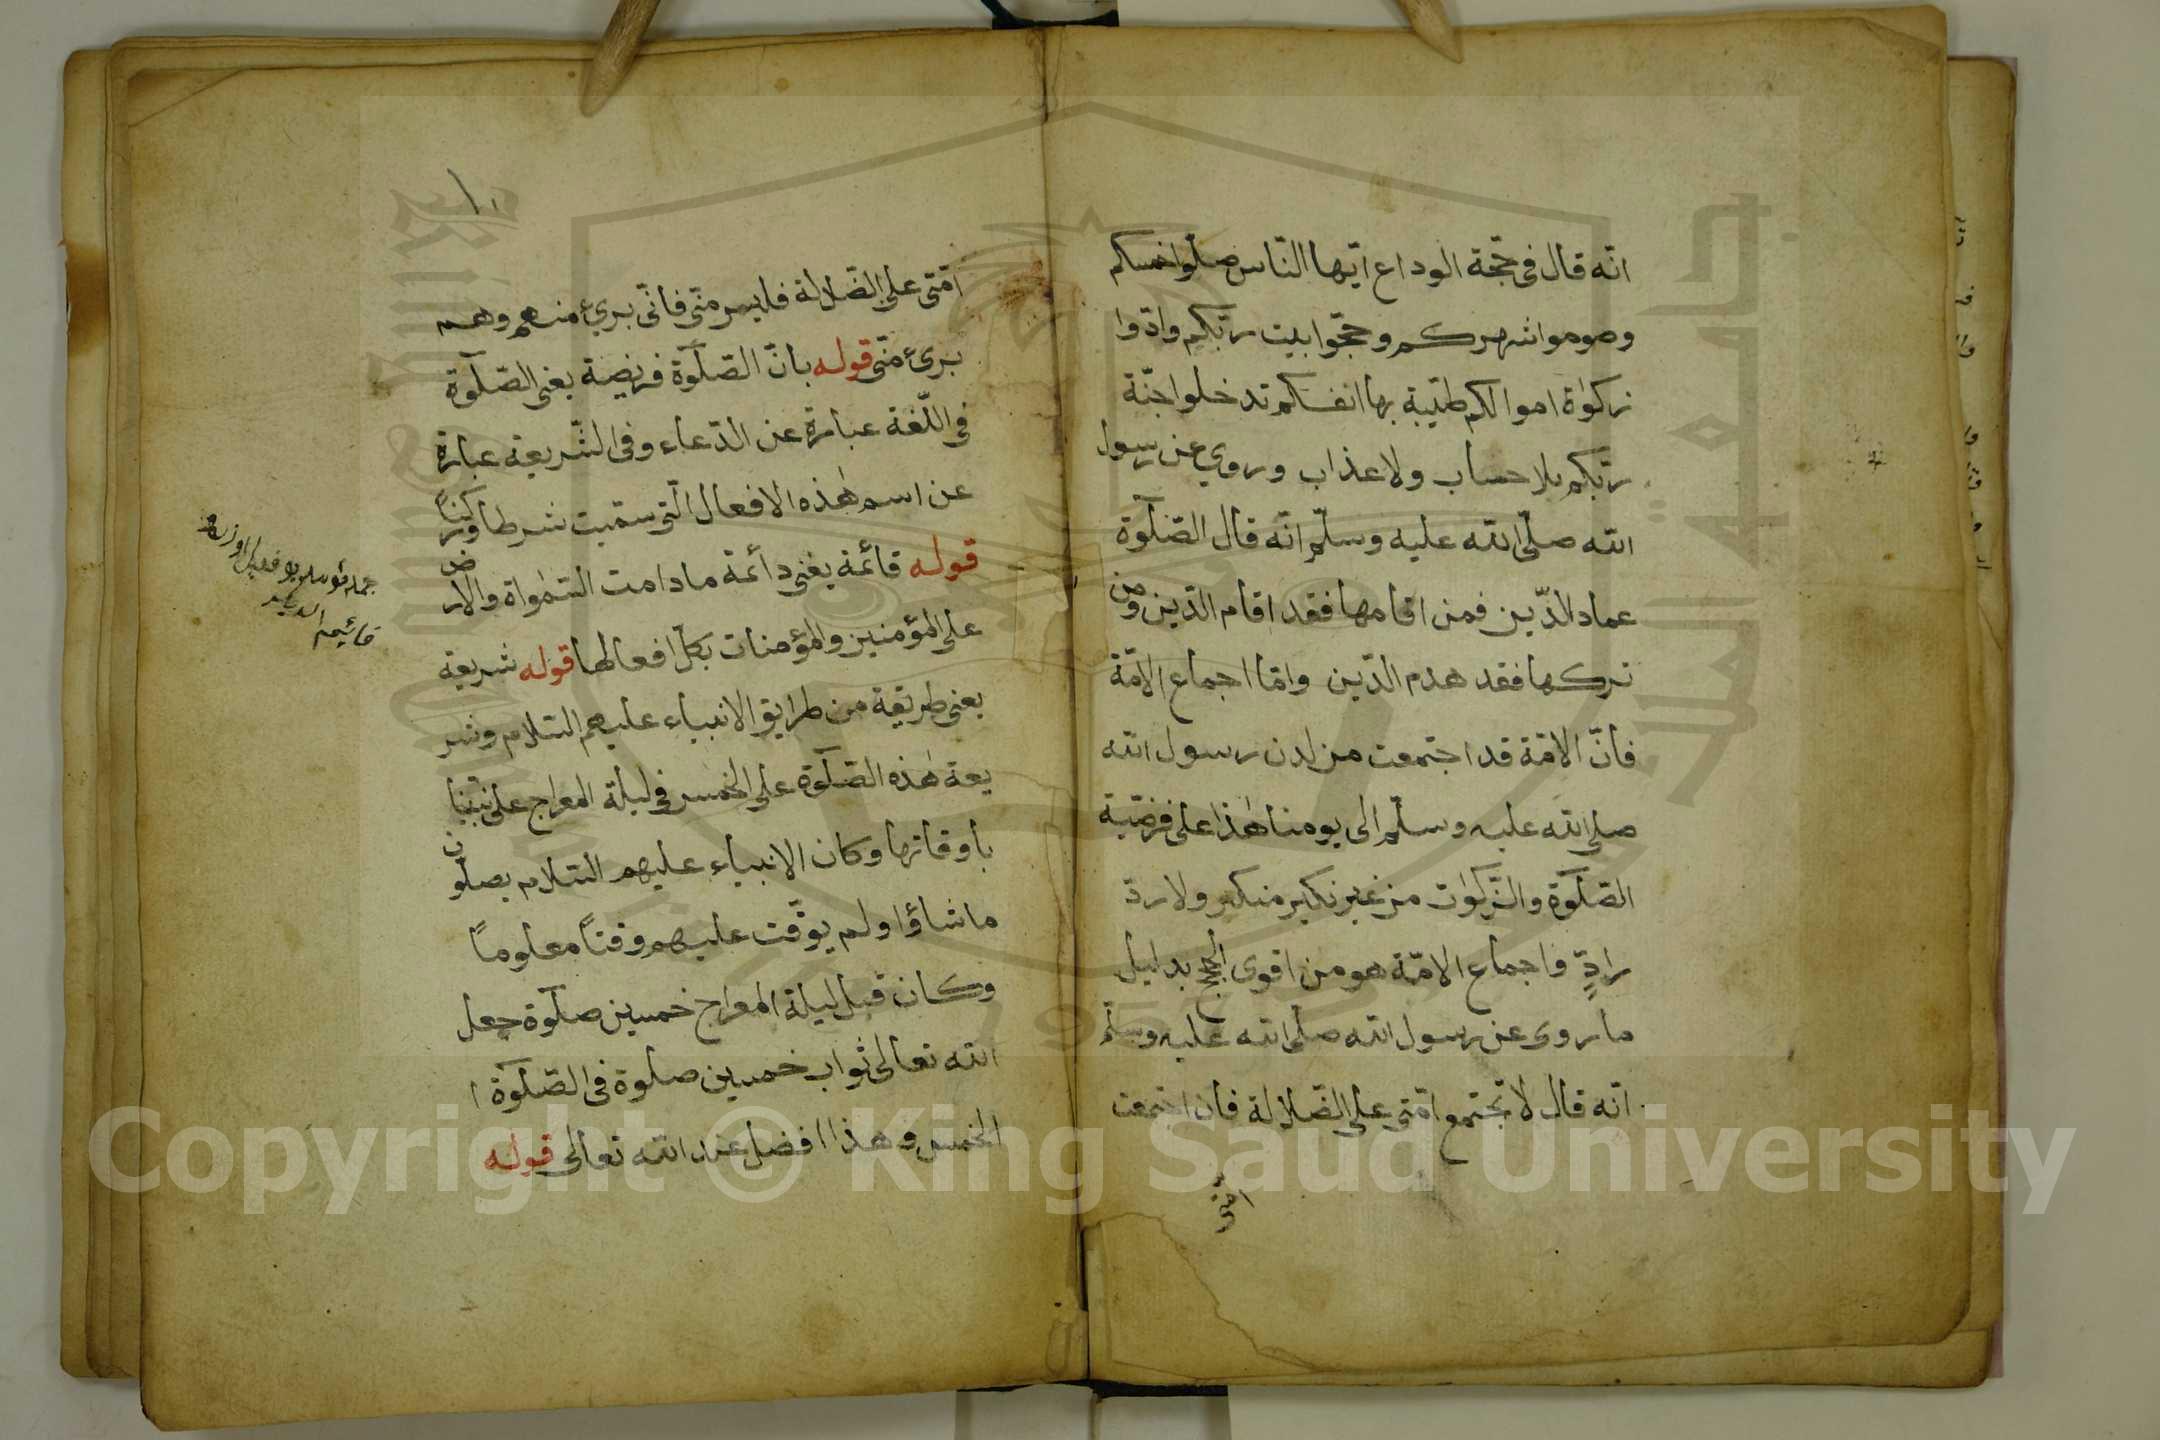 انّه قال فى حجّة الوداع ايّها النّاس صلّوا خمسكم
وصوموا شهركم وحجّوا بيت ربّكم وادّوا
زكوٰة اموالكم طيّبة بها انفسكم تدخلوا جنّة
ربّكم بلا حساب ولا عذاب وروي عن رسول
الله صلّى الله عليه وسلّم انّه قال الصّلٰوة
عماد الدّين فمن اقامها فقد اقام الدّين ومن
تركها فقد هدم الدّين وامّا اجماع الامّة
فانّ الامّة قد اجتمعت من لدن رسول الله
صلى الله عليه وسلّم الى يومنا هٰذا على فرضيّة
الصّلٰوة والزّكوٰت من غير نكير منكر ولا ردّ
رادٍّ واجماع الامّة هو من اقوى الحجج بدليل
ما روى عن رسول الله صلّى الله عليه وسلّم
انّه قال لا تجتمع امّتى على الضّلالة فان اجتمعت
امّتى
١٠
امّتى على الضّلالة فليس منّى فانّى بريء منهم وهم
برىء منّى قوله بانّ الصّلٰوة فريضة يعنى الصّلٰوة
فى اللّغة عبارة عن الدّعاء وفى الشّريعة عبارة
عن اسم هٰذه الافعال الّتى سمّيت شرطا وركنًا
قوله قائمة يعنى دائمة مادامت السّمٰواة والارض
على المؤمنين والمؤمنات بكلّ افعالها قوله شريعة
يعنى طريقة من طرايق الانبياء عليهم السّلام وشر
يعة هٰذه الصّلٰوة على الخمس فى ليلة المعراج على نبيّنا
باوقاتها وكان الانبياء عليهم السّلام يصلّون
ما شاؤا ولم يوقّت عليهم وقتاً معلوماً
وكان قبل ليلة المعراج خمسين صلٰوة جعل
الله تعالى ثواب خمسين صلوة فى الصّلٰوة ا
الخمس وهذا افضل عند الله تعالى قوله
قائيم
Copyright © King Saud University